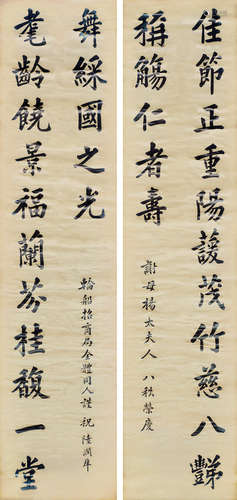 佳節正重陽蘐茂竹慈八豑
稱觴仁者壽
謝母楊太夫人 八秩榮慶
耄齡饒景福蘭芬桂馥一堂
舞綵國之光
輪船招商局全體同人謹祝 陸潤庠